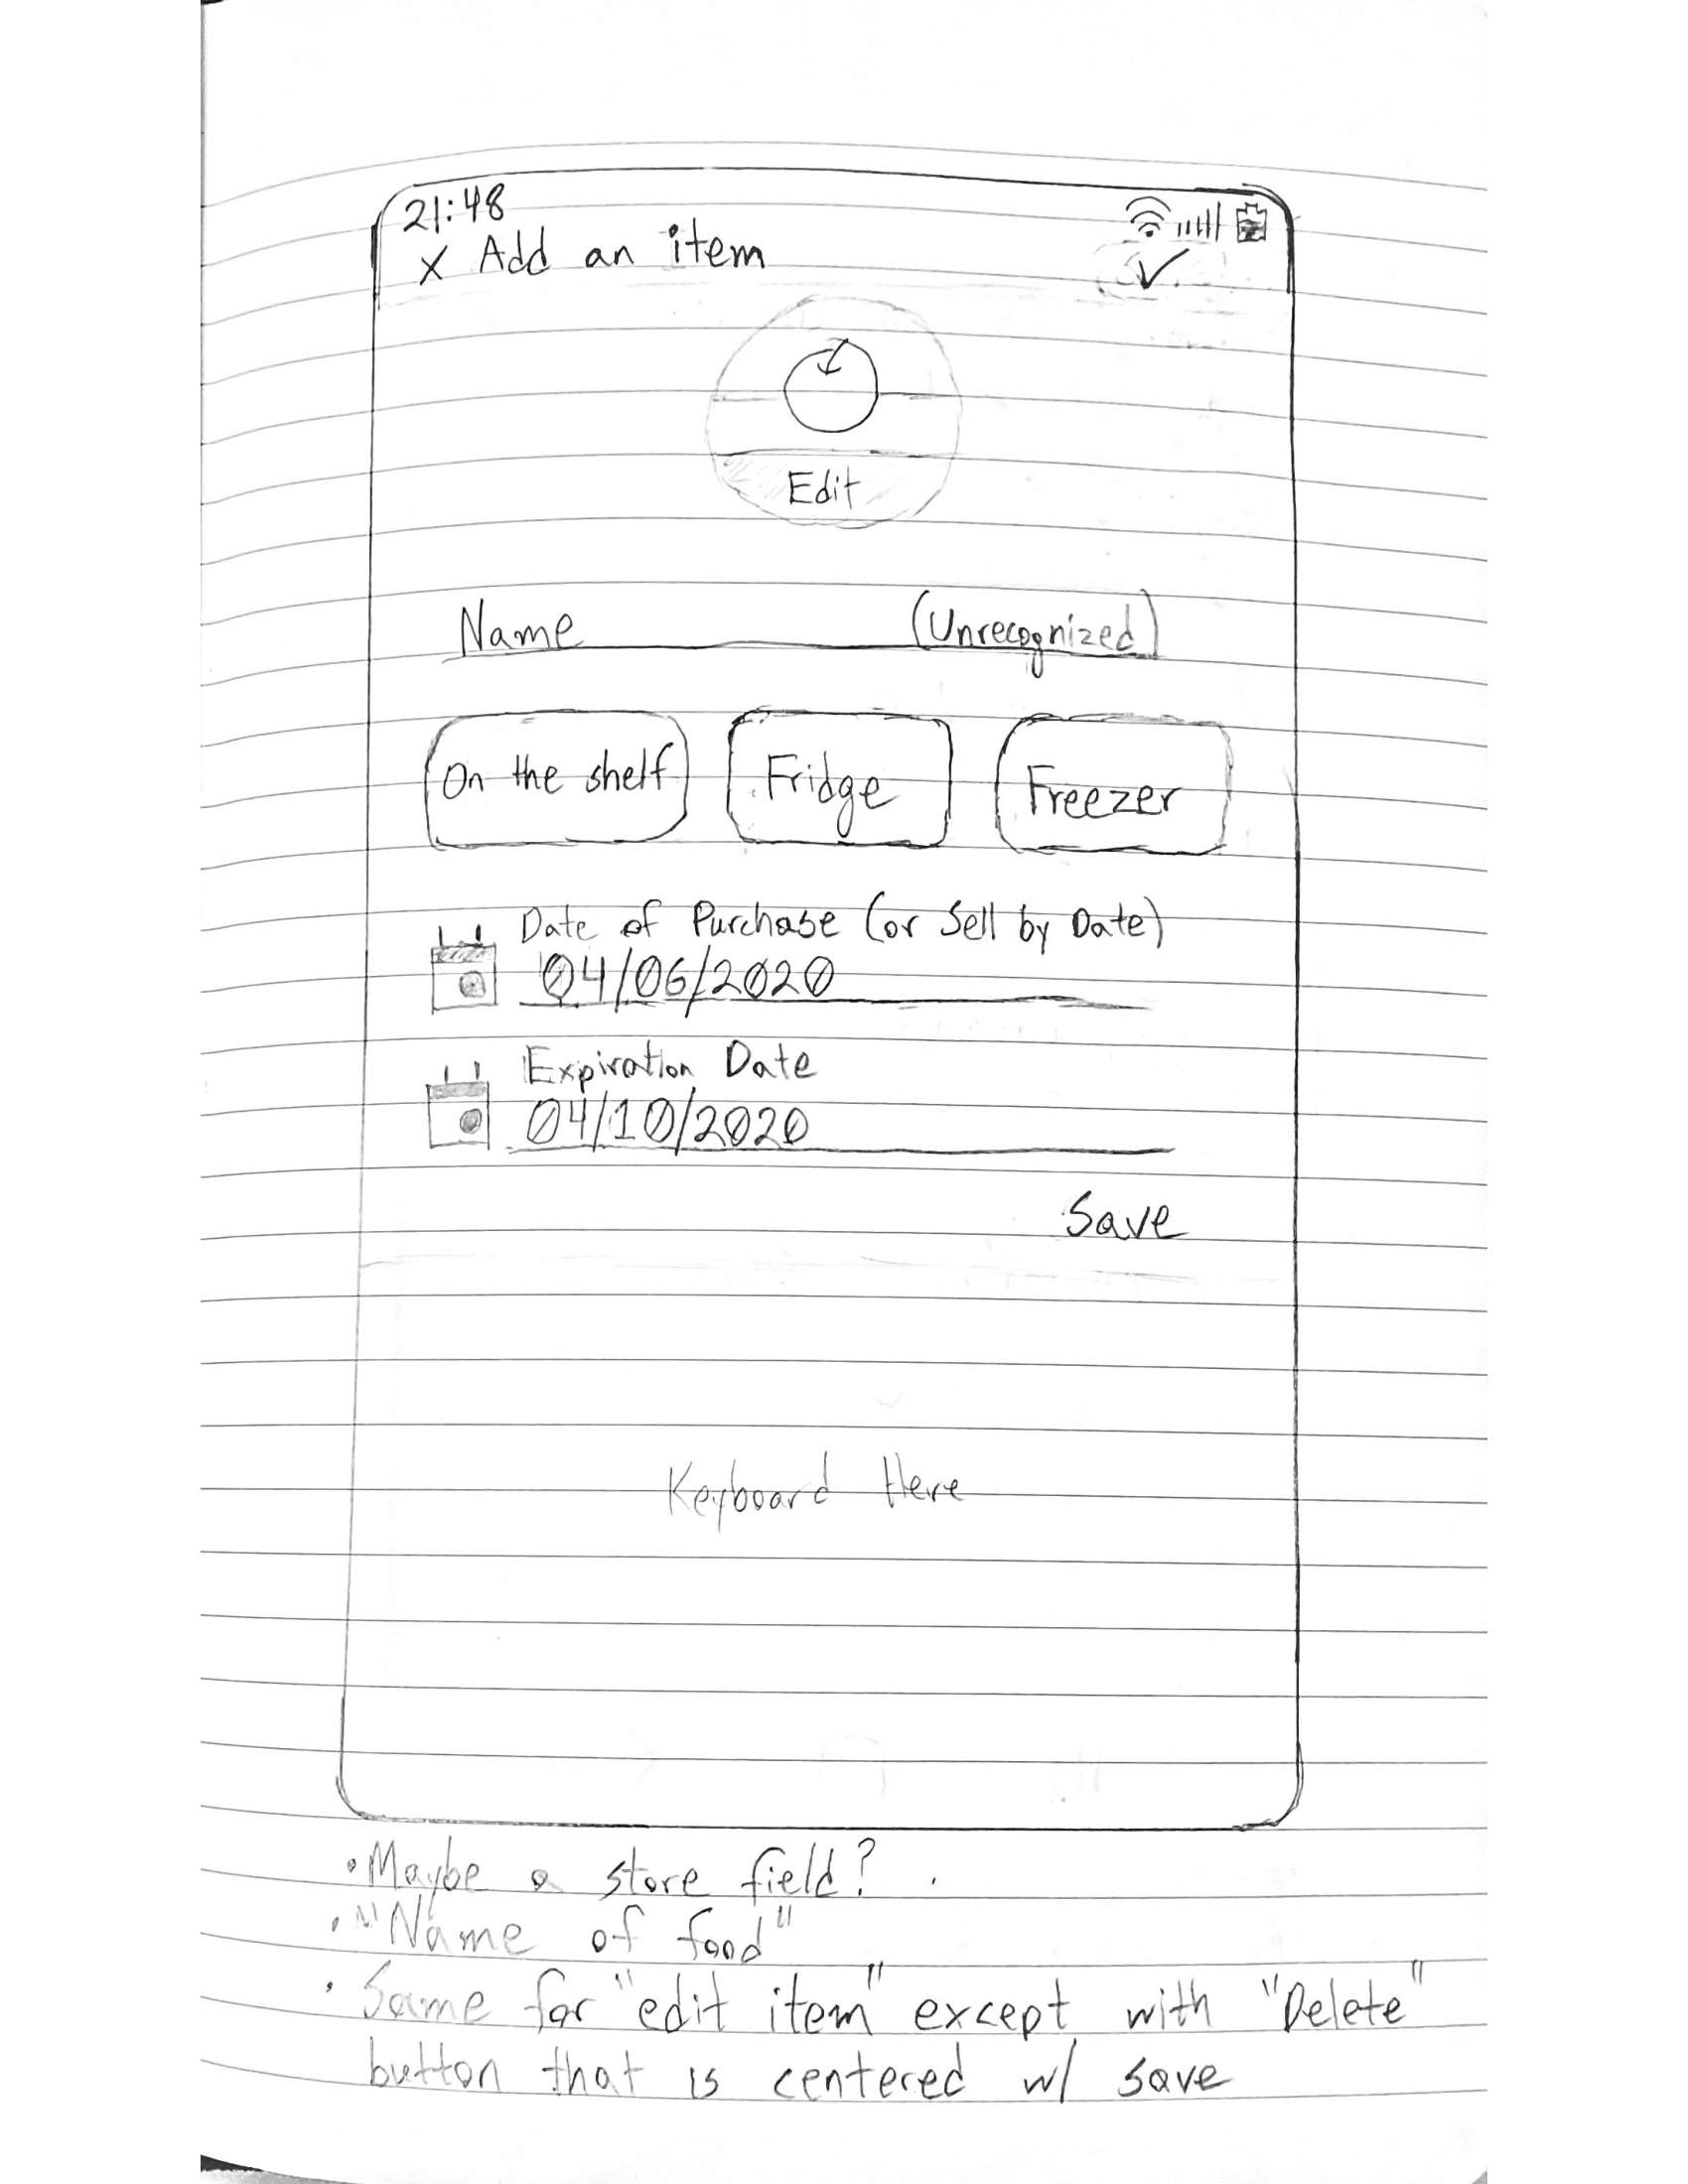 21:48
X Add an item ✓
Edit
Name (Unrecognized)
On the shelf Fridge Freezer
Date of Purchase (or Sell by Date)
04/06/2020
Expiration Date
04/10/2020
Save
Keyboard Here
• Maybe a store field?
• "Name of food"
• Same for "edit item" except with "Delete"
button that is centered w/ save